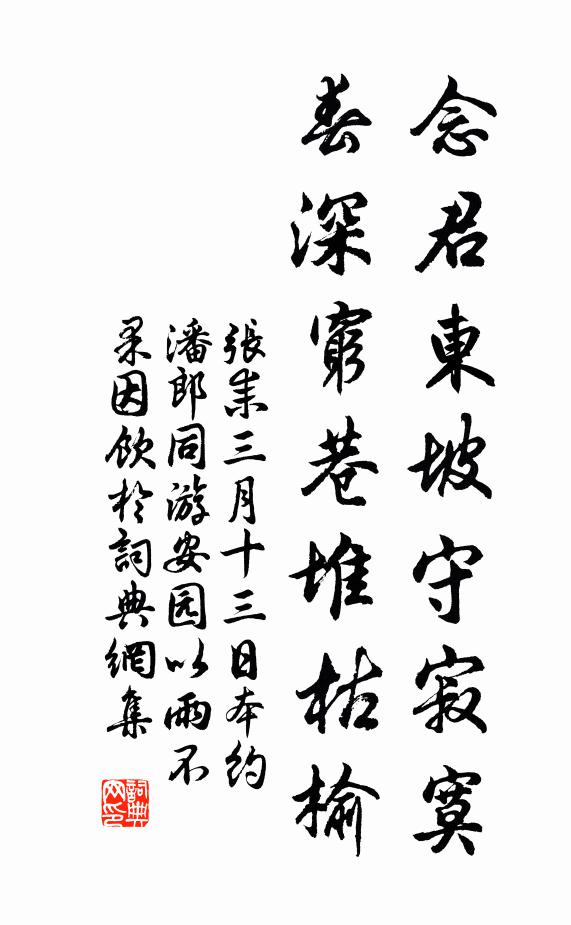 念君東坡守寂寞
春深窮巷堆枯榆
張耒三月十三日本約
潘郎同游安园以雨不
果因飲於詞典網集
詞典网印